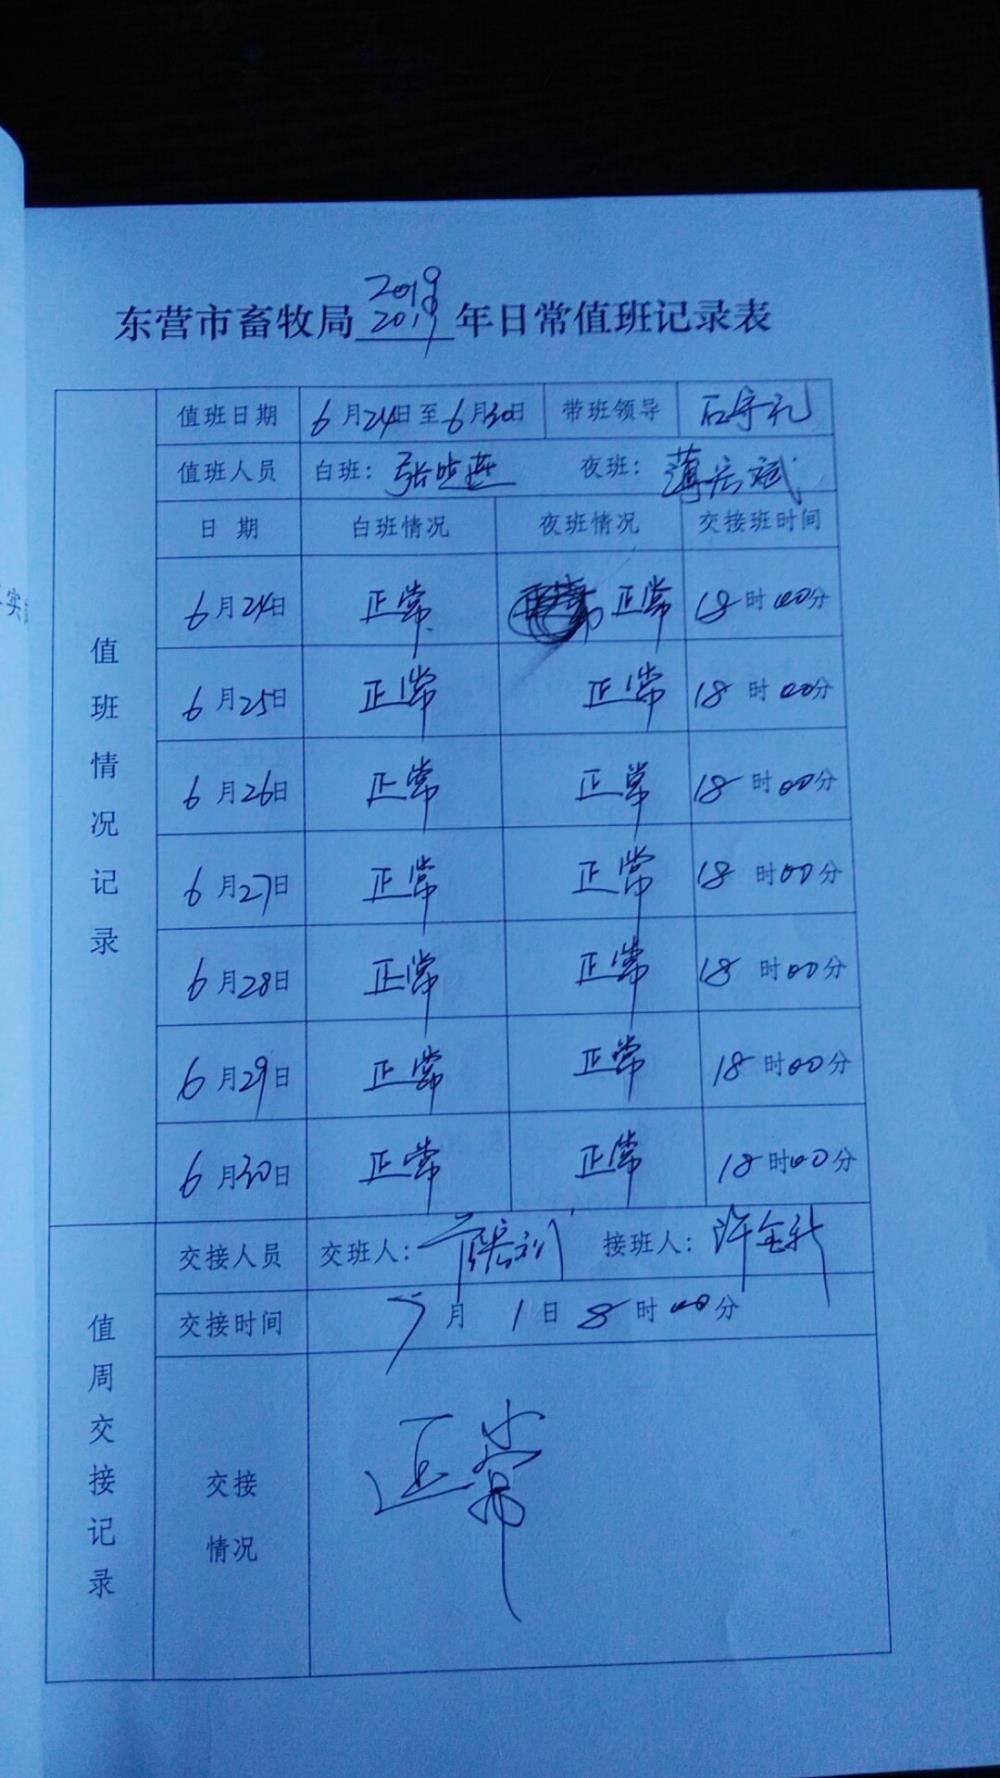 2019
东营市畜牧局2019年日常值班记录表
值班日期 6月24日至6月30日 带班领导 石守礼
值班人员 白班： 夜班：
日 期 白班情况 夜班情况 交接班时间
6月24日 正常 正常 18时00分
6月25日 正常 正常 18时00分
6月26日 正常 正常 18时00分
6月27日 正常 正常 18时00分
6月28日 正常 正常 18时00分
6月29日 正常 正常 18时00分
6月30日 正常 正常 18时00分
值班情况记录
交接人员 交班人： 接班人：许金新
交接时间 7月1日8时00分
交接情况 正常
值周交接记录
实